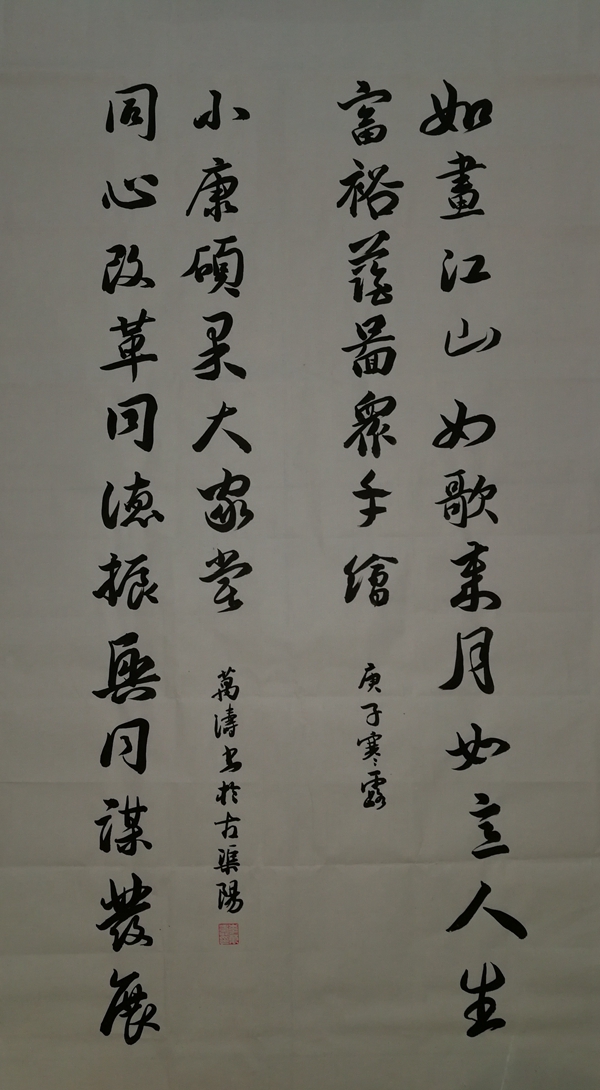 如畫江山如歌歲月如意人生
富裕藍圖眾手繪
庚子寒露
同心改革同德振興同謀發展
小康碩果大家嘗
萬濤書於古渠陽